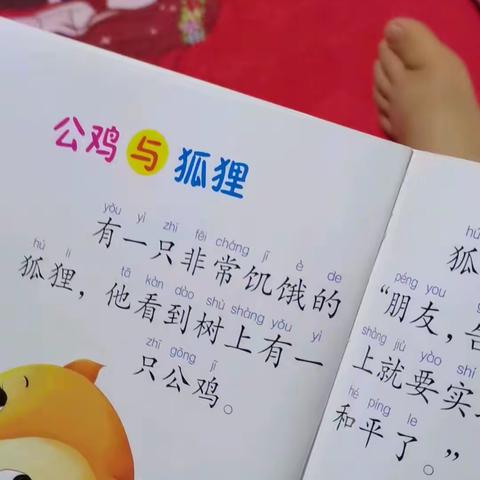 公鸡与狐狸
yǒu yì zhī fēi cháng jī è de
有一只非常饥饿的
hú li tā kàn dào shù shàng yǒu yì
狐狸，他看到树上有一
zhī gōng jī
只公鸡。
hú
狐
péng you
“朋友，告
shàng jiù yào shí
上就要实
hé píng le
和平了。”